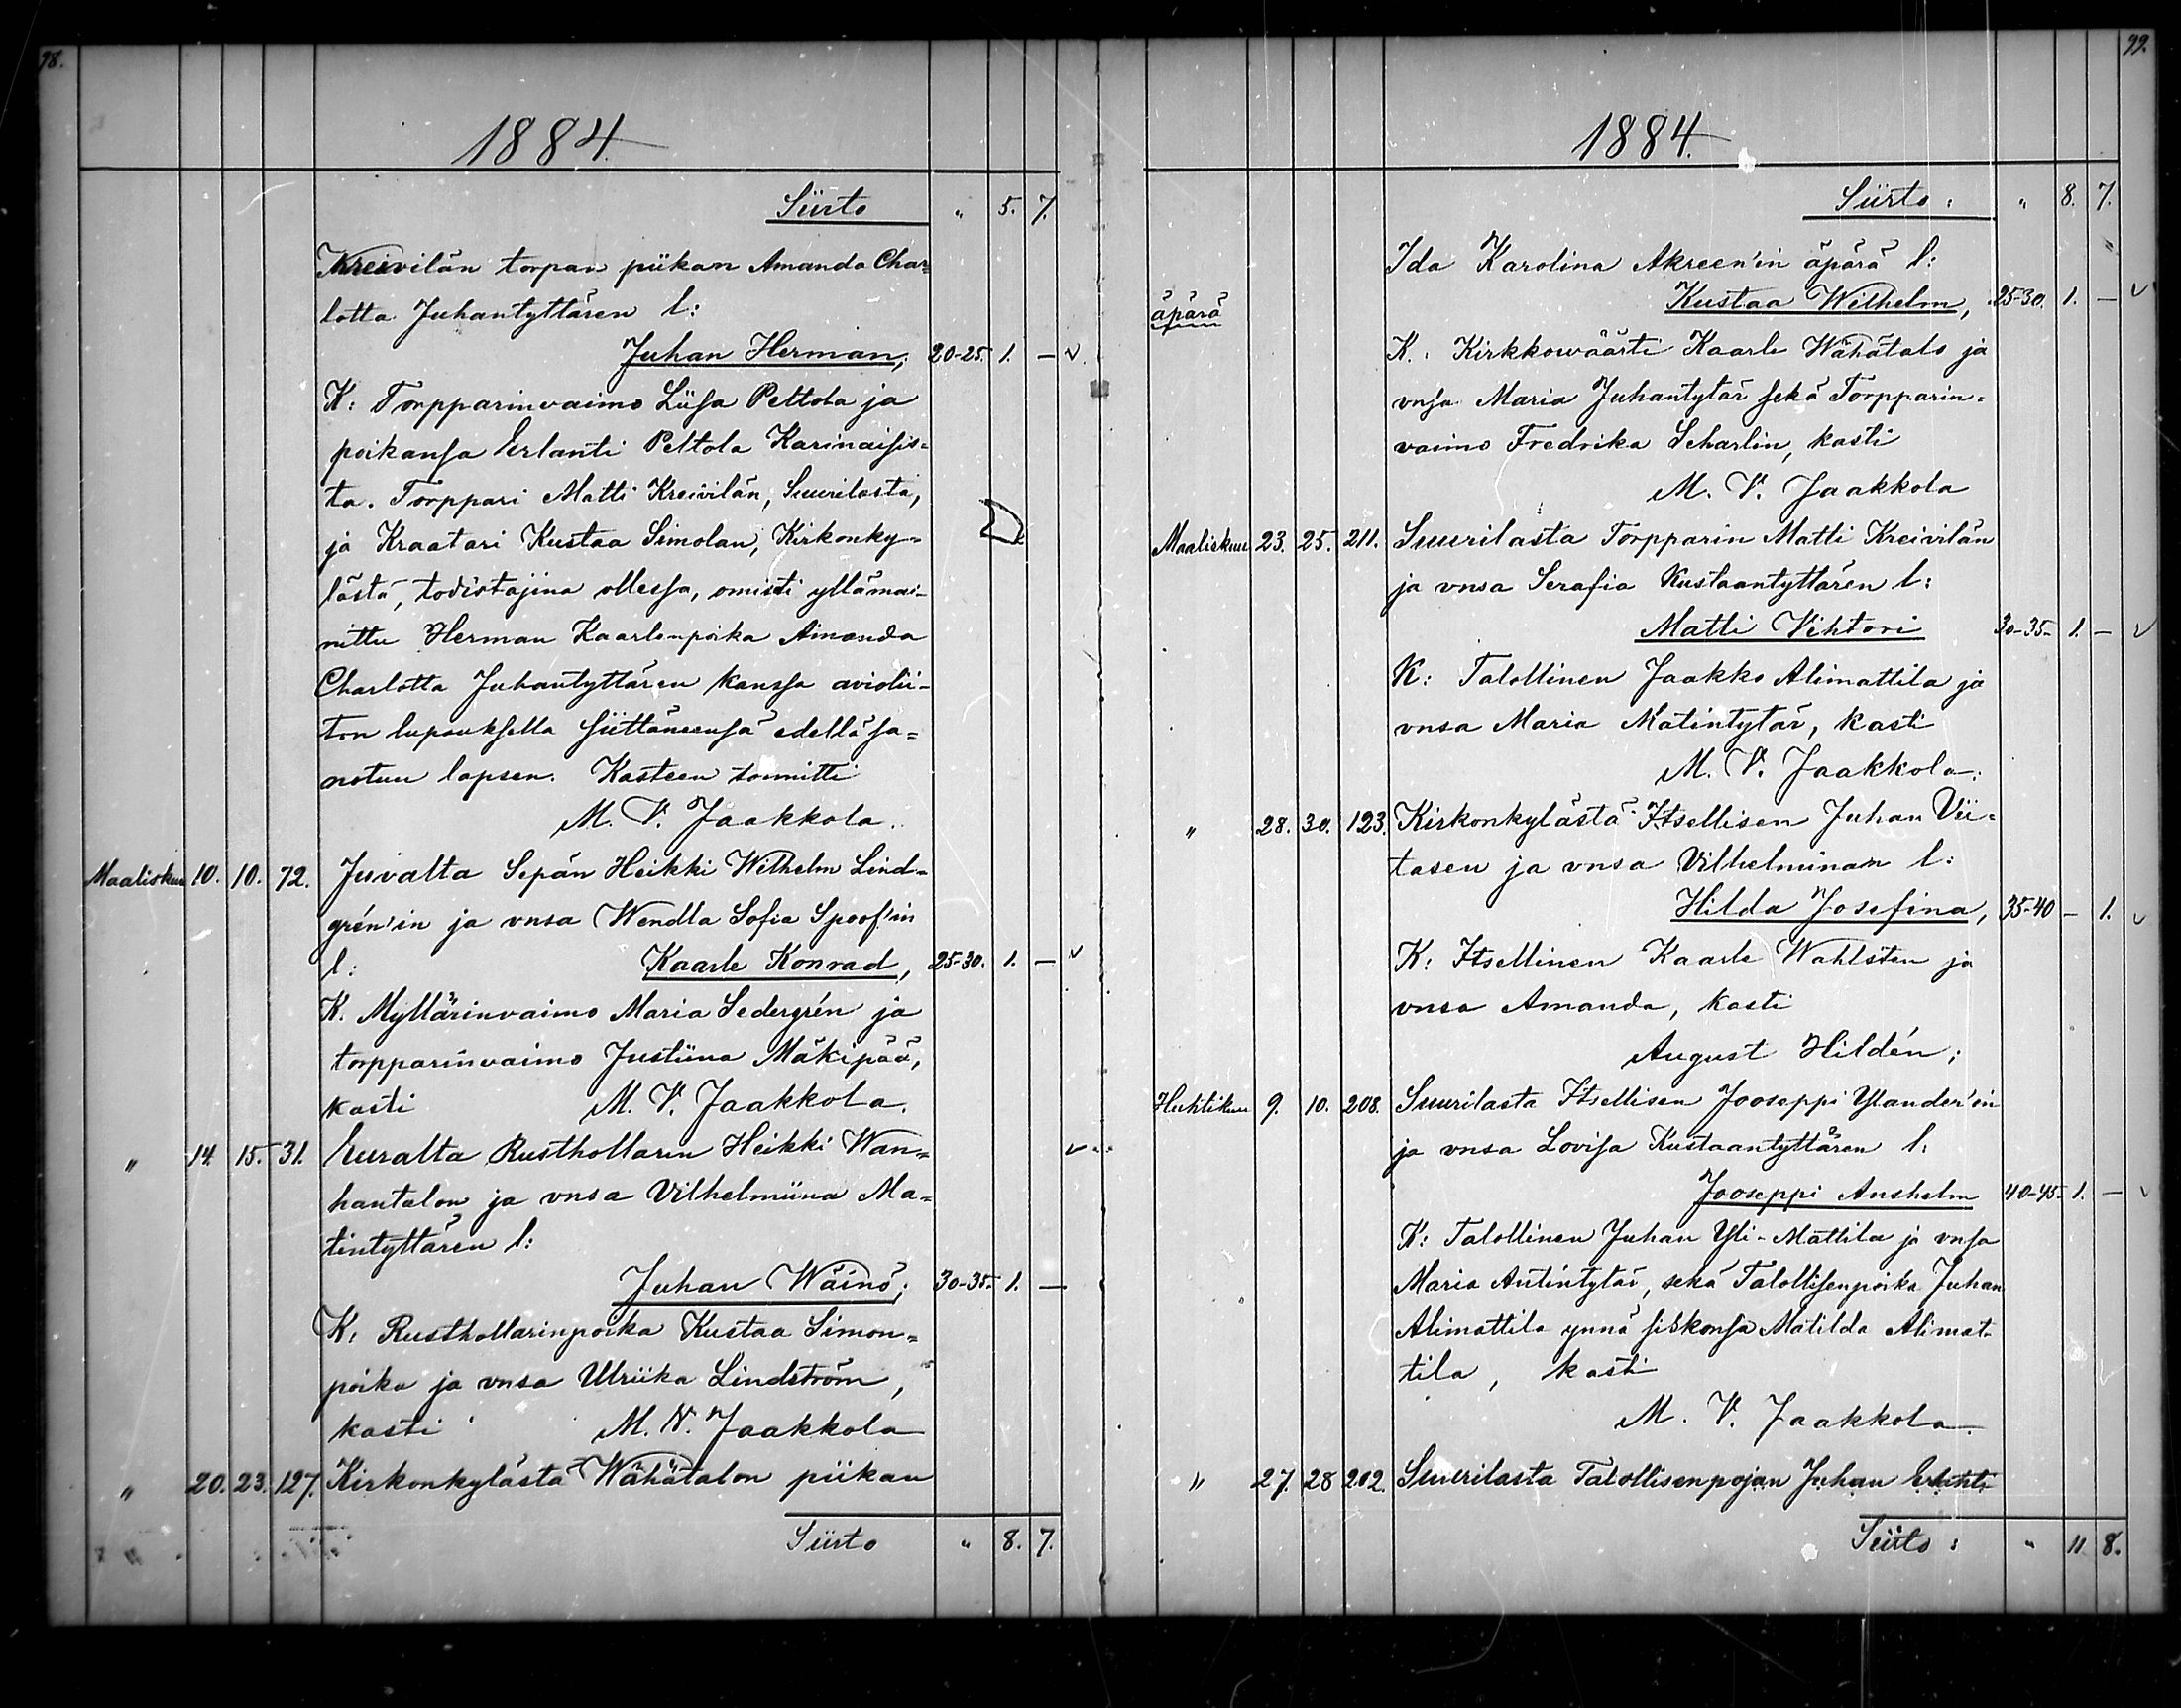 98.
1884.
Siirto " 5. 7.
Kreivilän torpan piikan Amanda Char=
lotta Juhantyttären l:
Juhan Herman, 20-25. 1. —
K: Torpparinvaimo Liisa Peltola ja
poikansa Erlanti Peltola Karinaisis=
ta. Torppari Matti Kreivilän, Suurilasta,
ja Kraatari Kustaa Simolan, Kirkonky=
lästä, todistajina ollessa, omisti yllämai=
nittu Herman Kaarlenpoika Amanda
Charlotta Juhantyttären kanssa aviolii=
ton lupauksella siittäneensä edelläsa=
notun lapsen. Kasteen toimitti
M. V. Jaakkola.
Maaliskuu 10. 10. 72. Juvalta Sepän Heikki Wilhelm Lind=
grén'in ja vnsa Wendla Sofia Spoof'in
l: Kaarle Konrad, 25-30. 1. —
K. Myllärinvaimo Maria Sedergrén ja
torpparinvaimo Justiina Mäkipää,
kasti M. V. Jaakkola.
" 14. 15. 31. Euralta Rusthollarin Heikki Wan=
hantalon ja vnsa Vilhelmiina Ma=
tintyttären l:
Juhan Wäinö; 30-35. 1. —
K: Rusthollarinpoika Kustaa Simon=
poika ja vnsa Ulriika Lindström,
kasti M. V. Jaakkola
" 20. 23. 127. Kirkonkylästä Wähätalon piikan
Siirto " 8. 7.
99.
1884.
Siirto: " 8. 7.
Ida Karolina Akreen'in äpärä l:
äpärä Kustaa Wilhelm, 25-30. 1. —
K.: Kirkkowäärti Kaarle Wähätalo ja
vnsa Maria Juhantytär sekä Torpparin=
vaimo Fredrika Scharlin, kasti
M. V. Jaakkola
Maaliskuu 23. 25. 211. Suurilasta Torpparin Matti Kreivilän
ja vnsa Serafia Kustaantyttären l:
Matti Vihtori 30-35- 1. —
K: Talollinen Jaakko Alimattila ja
vnsa Maria Matintytär, kasti
M. V. Jaakkola.
" 28. 30. 123. Kirkonkylästä Itsellisen Juhan Vii=
tasen ja vnsa Vilhelminan l:
Hilda Josefina, 35-40 — 1.
K: Itsellinen Kaarle Wahlsten ja
vnsa Amanda, kasti
August Hildén;
Huhtikuu 9. 10. 208. Suurilasta Itsellisen Jooseppi Ylander'in
ja vnsa Lovisa Kustaantyttären l:
Jooseppi Anshelm 40-45- 1. —
K: Talollinen Juhan Yli-Mattila ja vnsa
Maria Antintytär, sekä Talollisenpoika Juhan
Alimattila ynnä siskonsa Matilda Alimat=
tila, kasti
M. V. Jaakkola.
" 27. 28 202. Suurilasta Talollisenpojan Juhan
Siirto: " 11 8.